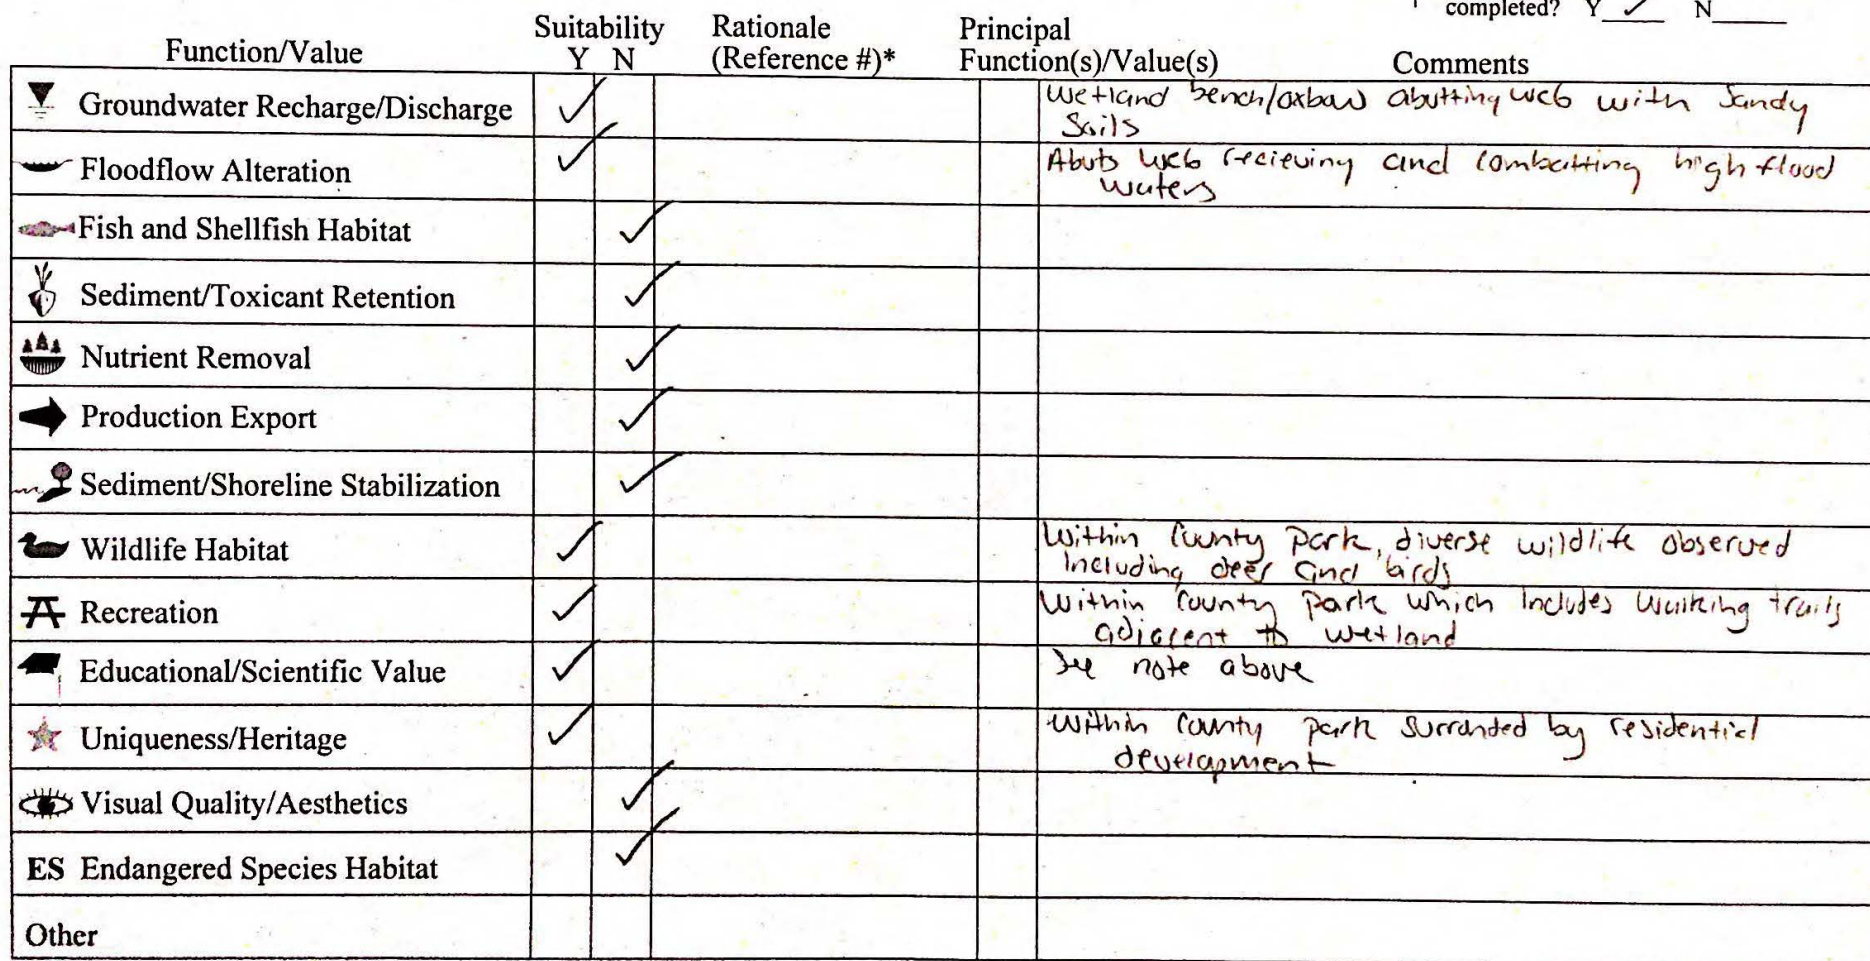 completed? Y ✓ N
Suitability Rationale Principal
Function/Value Y N (Reference #)* Function(s)/Value(s) Comments
Groundwater Recharge/Discharge ✓ Wetland bench/oxbow abutting WC6 with Sandy
Soils
Floodflow Alteration ✓ Abuts WC6 recieving and combatting high flood
waters
Fish and Shellfish Habitat ✓
Sediment/Toxicant Retention ✓
Nutrient Removal ✓
Production Export ✓
Sediment/Shoreline Stabilization ✓
Wildlife Habitat ✓ Within County Park, diverse wildlife observed
Including deer and birds
Recreation ✓ Within County Park which Includes Walking trails
adjacent to wetland
Educational/Scientific Value ✓ See note above
Uniqueness/Heritage ✓ Within County park surrounded by residential
development
Visual Quality/Aesthetics ✓
ES Endangered Species Habitat ✓
Other